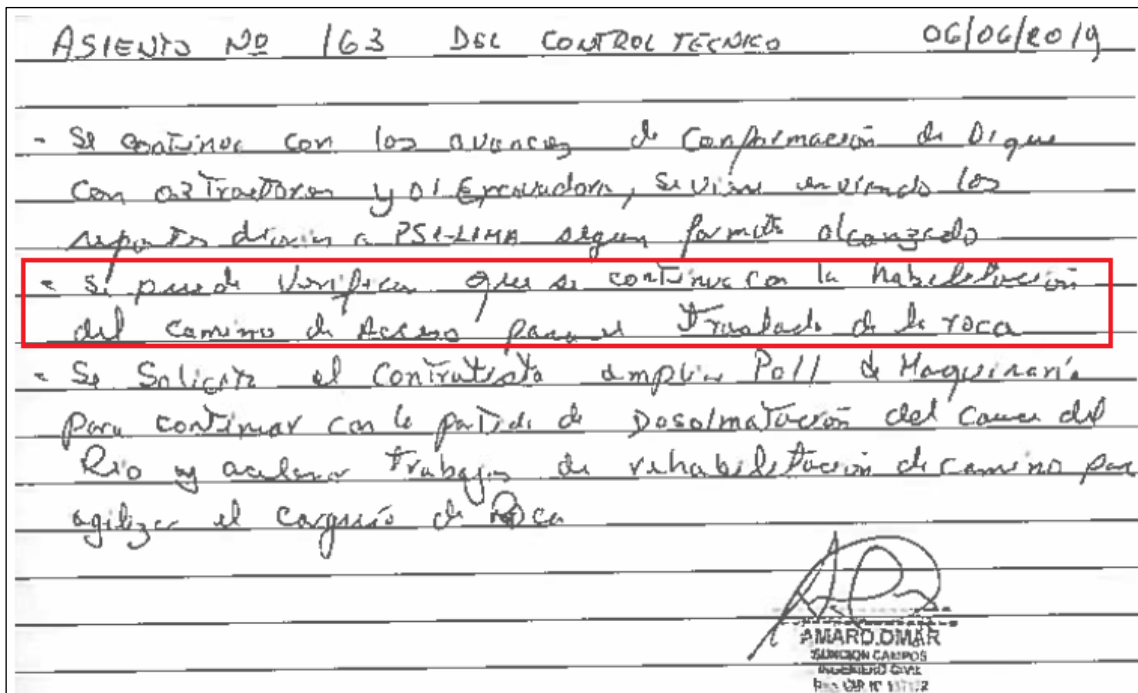 ASIENTO Nº 163 DEL CONTROL TECNICO 06/06/2019
- Se continua con los avances de Conformación de Dique
Con 02 Tractores y 01 Excavadora, se viene enviando los
reportes diarios a PSI-LIMA segun formato alcanzado
- Se puede Verificar que se continua con la habilitación
del camino de Acceso para el Traslado de la roca
- Se Solicita al Contratista ampliar Poll de Maquinaria
para continuar con la partida de Descolmatación del Cauce del
Rio y acelerar Trabajos de rehabilitación de camino para
agilizar el carguio de Roca
AMARO OMAR
CAMPOS
INGENIERO CIVIL